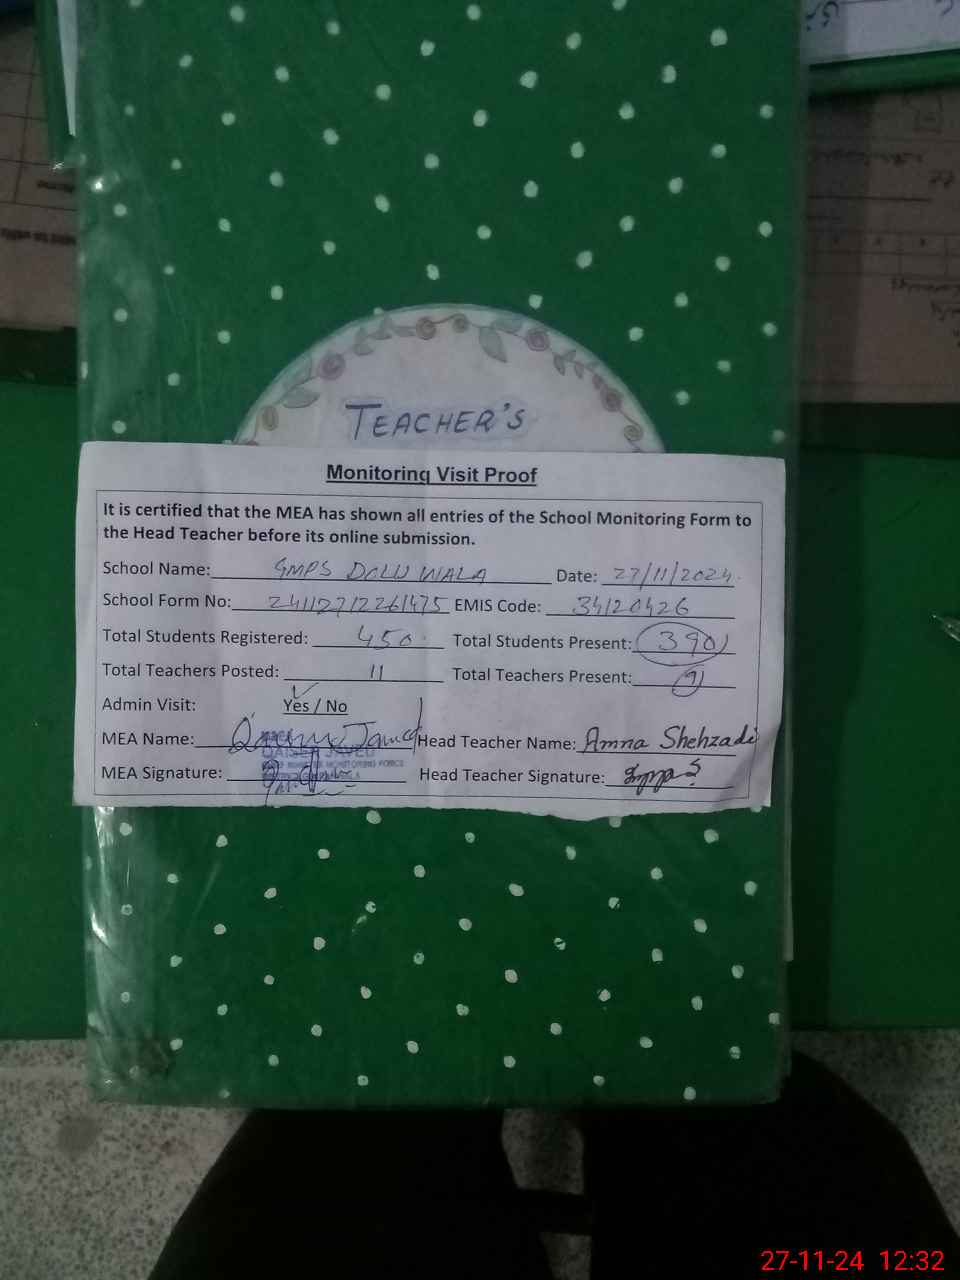 TEACHER'S
Monitoring Visit Proof
It is certified that the MEA has shown all entries of the School Monitoring Form to
the Head Teacher before its online submission.
School Name: GMPS DOLU WALA Date: 27/11/2024
School Form No: EMIS Code: 34120426
Total Students Registered: 450 Total Students Present: 390
Total Teachers Posted: 11 Total Teachers Present: 9
Admin Visit: Yes / No
MEA Name: Head Teacher Name: Amna Shehzadi
JAVED
MEA Signature: Head Teacher Signature:
27-11-24 12:32